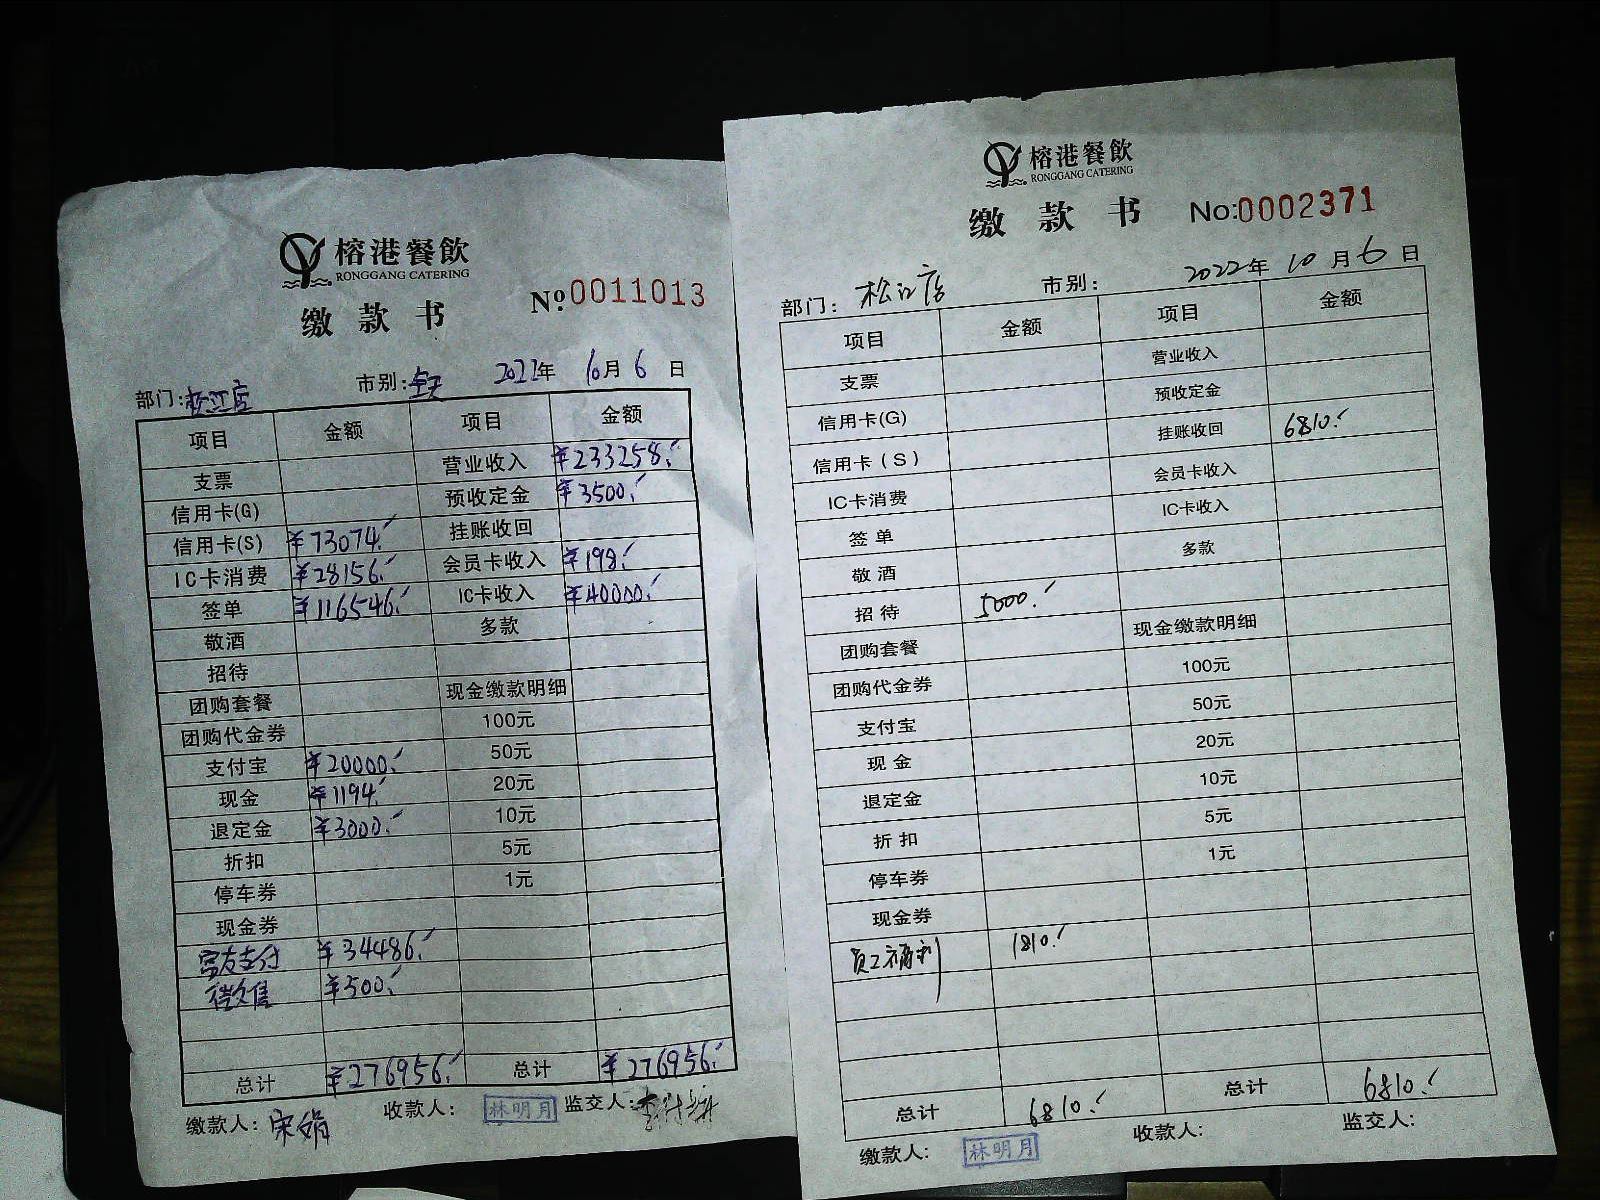 榕港餐飲
RONGGANG CATERING
缴款书 №0011013
部门:松江店 市别:全天 2022年10月6日
项目 金额 项目 金额
支票 营业收入 ¥233258.
信用卡(G) 预收定金 ¥3500.
信用卡(S) ¥73074. 挂账收回
IC卡消费 ¥28156. 会员卡收入 ¥198.
签单 ¥116546. IC卡收入 ¥40000.
敬酒 多款
招待
团购套餐 现金缴款明细
团购代金券 100元
支付宝 ¥20000. 50元
现金 ¥1194. 20元
退定金 ¥3000. 10元
折扣 5元
停车券 1元
现金券
富友支付 ¥34486.
微售 ¥500.
总计 ¥276956. 总计 ¥276956.
缴款人:宋娟 收款人: 林明月 监交人:
榕港餐飲
RONGGANG CATERING
缴款书 No:0002371
部门:松江店 市别: 2022年10月6日
项目 金额 项目 金额
支票 营业收入
信用卡(G) 预收定金
信用卡(S) 挂账收回 6810.
IC卡消费 会员卡收入
签单 IC卡收入
敬酒 多款
招待 5000.
团购套餐 现金缴款明细
团购代金券 100元
支付宝 50元
现金 20元
退定金 10元
折扣 5元
停车券 1元
现金券
员工福利 1810.
总计 6810. 总计 6810.
缴款人: 林明月 收款人: 监交人: